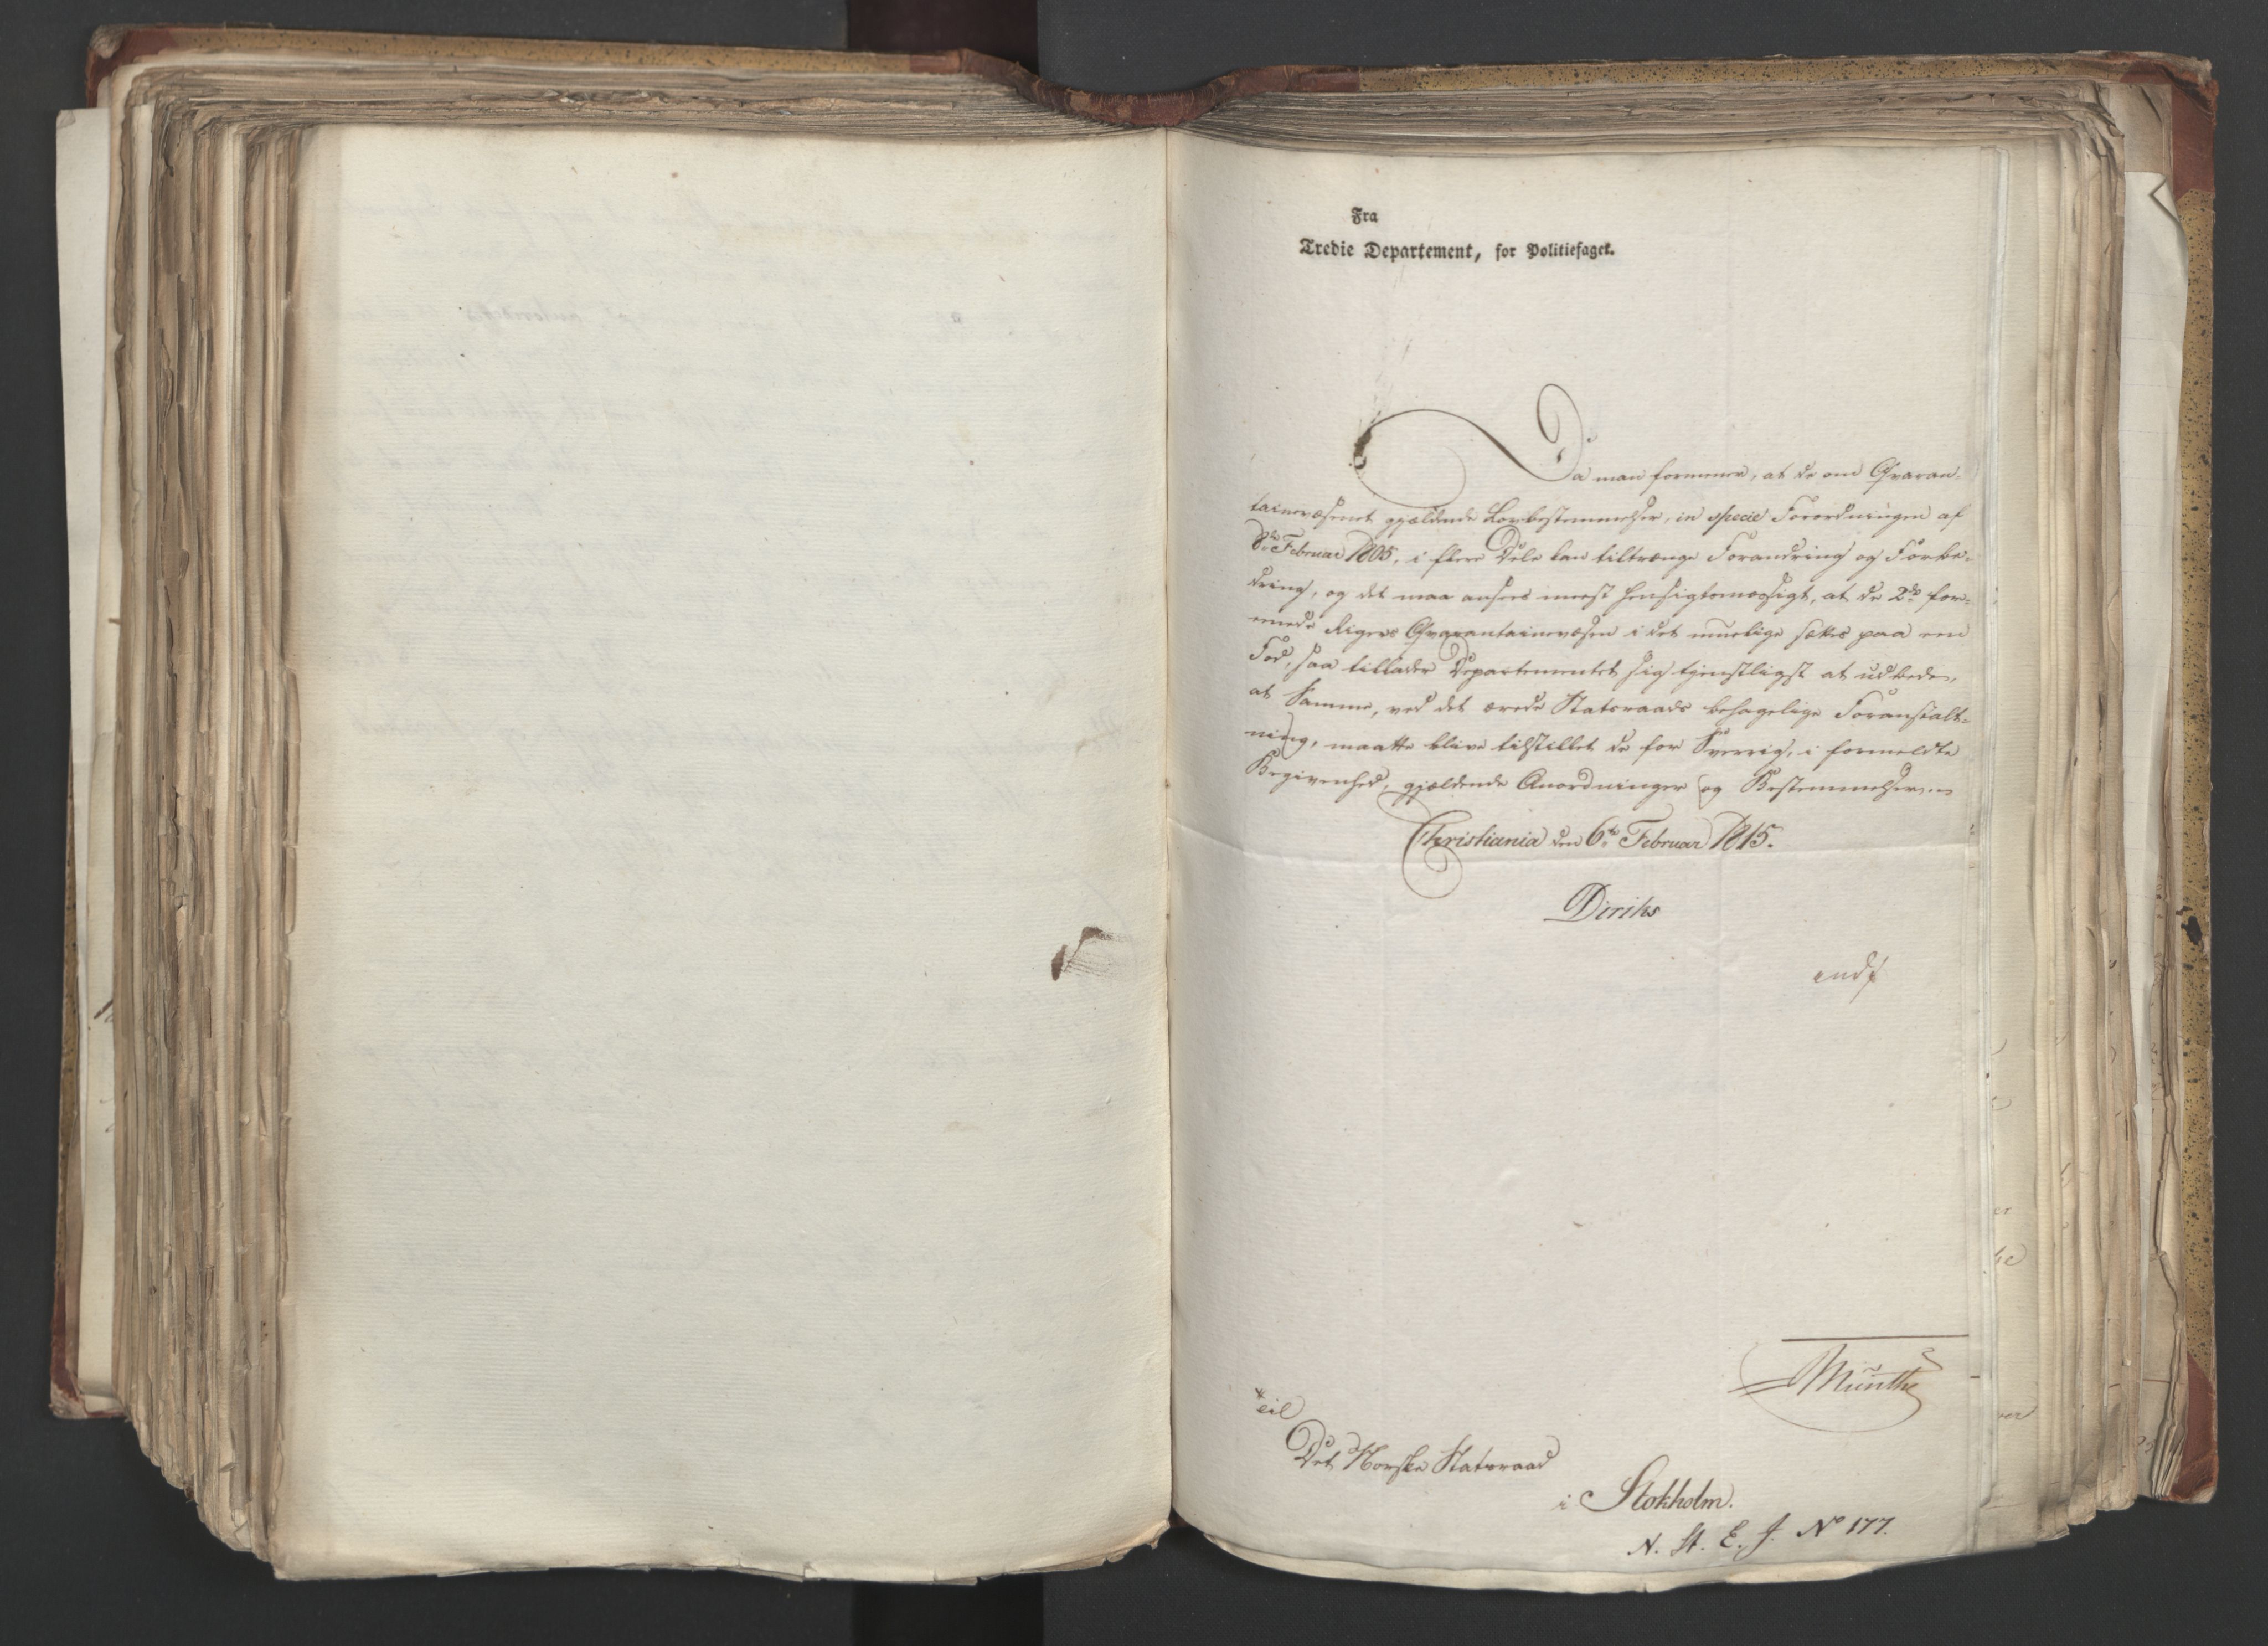 Fra
Tredie Departement, for Politiefaget.
Da man formener, at de om Qvaran-
tainevæsenet gjældende Lovbestemmelser, in specie Forordningen af
8de Februar 1805, i flere Dele kan tiltrænge Forandring og Forbe-
dring, og det maa ansees meest hensigtsmæssigt, at de 2de for-
enede Rigers Qvarantainevæsen i det muelige sættes paa een
Fod, saa tillader Departementet sig tjenstligst at udbede,
at Samme, ved det ærede Statsraads behagelige Foranstalt-
ning, maatte blive tilstillet de for Sverrig, i formeldte
Begivenhed, gjældende Anordninger og Bestemmelser.
Christiania den 6te Februar 1815.
Diriks
Munthe
Til
Det Norske Statsraad
i Stokholm.
N. St. E. J. No 177.